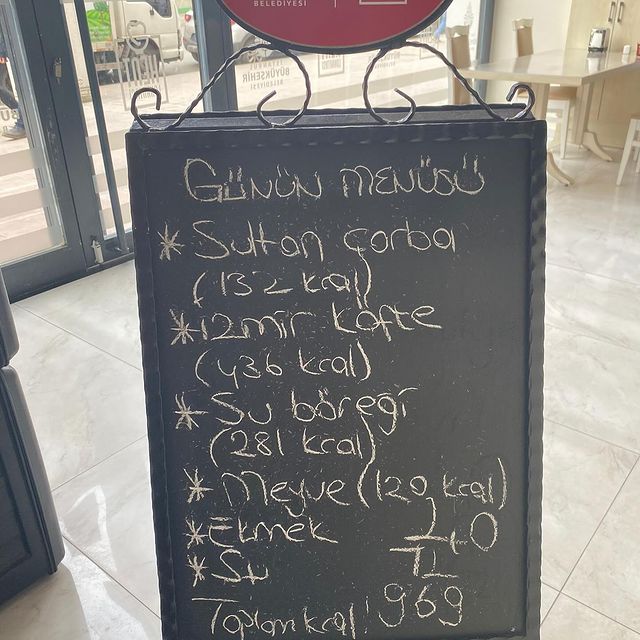 BELEDİYESİ
BÜYÜKŞEHİR
BELEDİYESİ
GÜNÜN MENÜSÜ
* Sultan çorba
(132 kcal)
* izmir köfte
(436 kcal)
* Su böreği
(281 kcal)
* Meyve (120 kcal)
* Ekmek
* Su
40
TL
Toplam kcal: 969